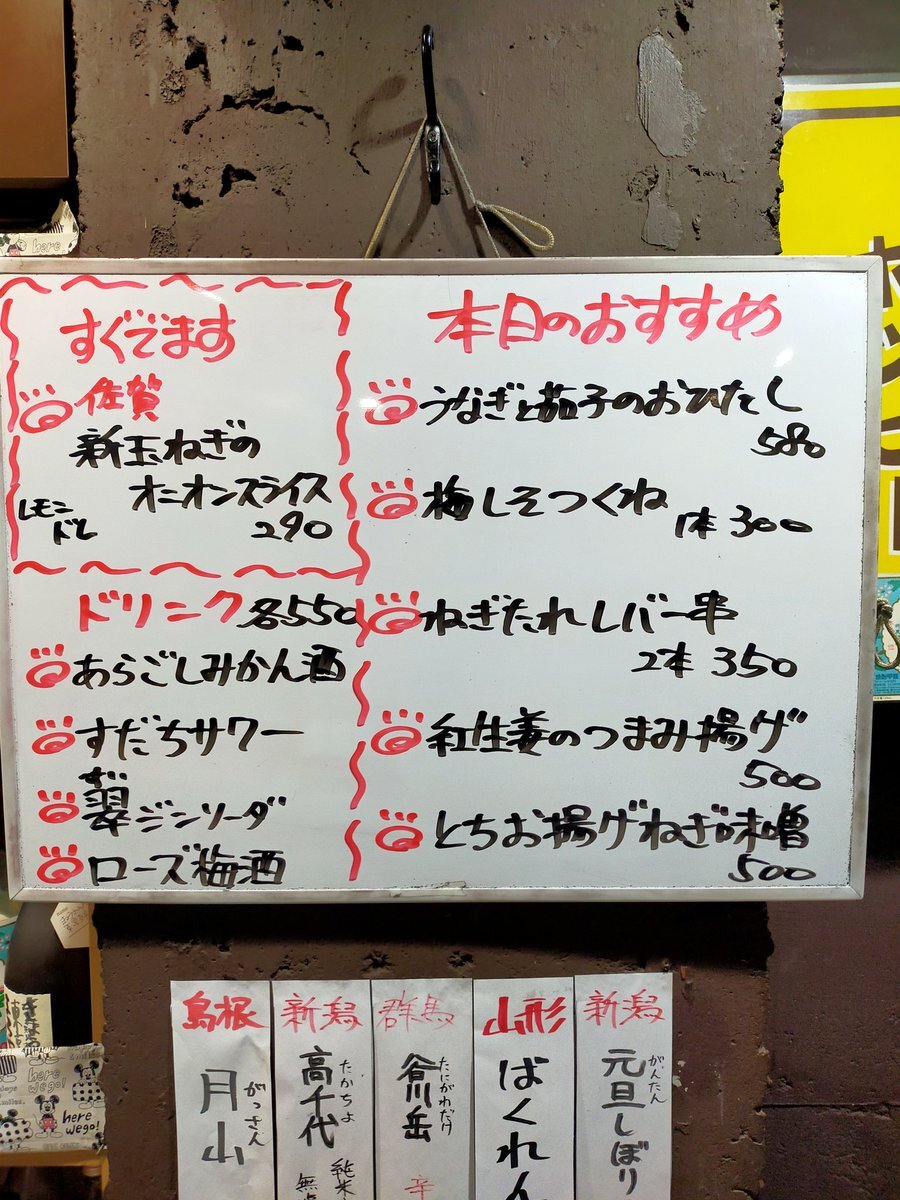 すぐでます
佐賀
新玉ねぎの
オニオンスライス
レモン
ドレ
290
ドリンク 各550
あらごしみかん酒
すだちサワー
すい
翠ジンソーダ
ローズ梅酒
本日のおすすめ
うなぎと茄子のおひたし
580
梅しそつくね
1本 300
ねぎたれレバー串
2本 350
紅生姜のつまみ揚げ
500
とちお揚げねぎ味噌
500
島根
月山
がっさん
新潟
高千代
たかちよ
純米
無
群馬
谷川岳
たにがわだけ
辛
山形
ばくれん
新潟
元旦しぼり
がんたん
here
here
we go!
here
we go!